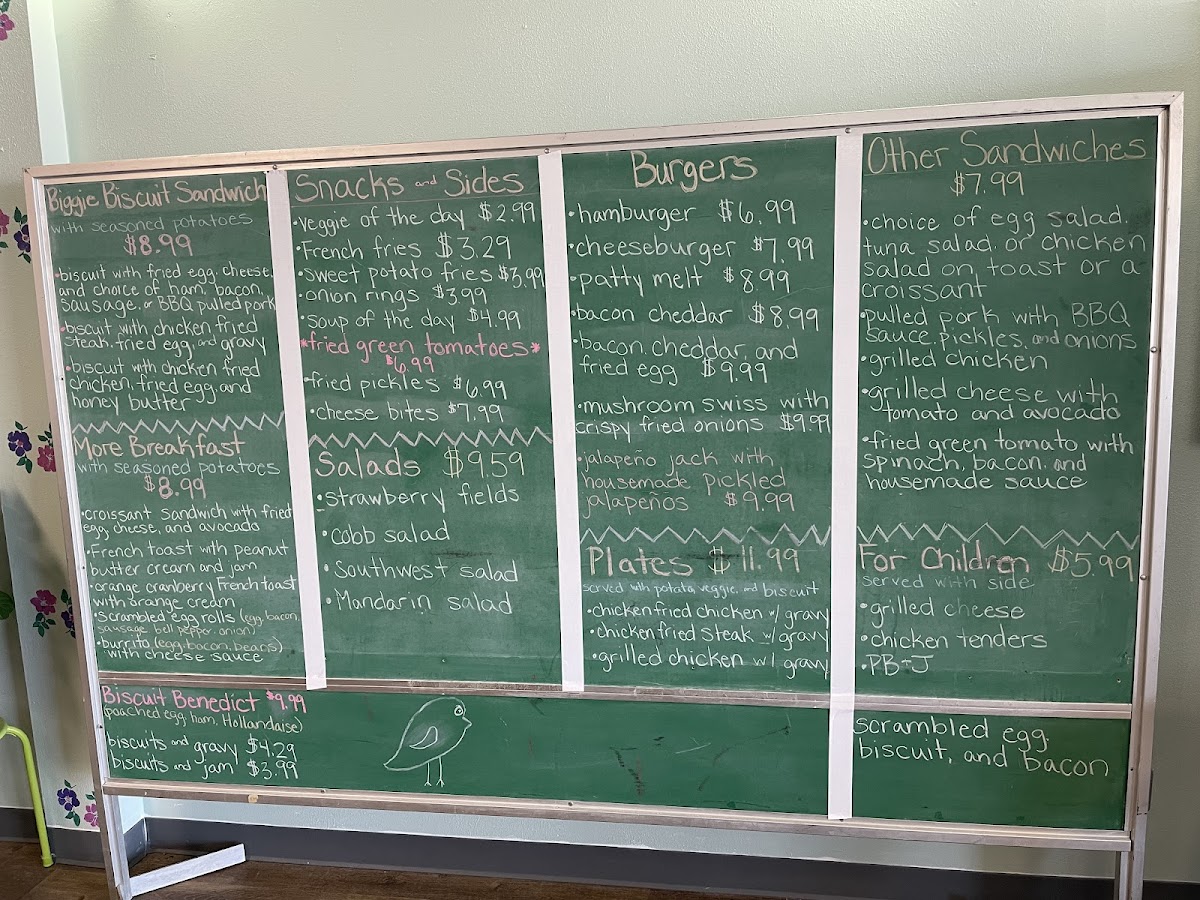 Biggie Biscuit Sandwich
with seasoned potatoes
$8.99
•biscuit with fried egg, cheese,
and choice of ham, bacon,
sausage, or BBQ pulled pork
•biscuit with chicken fried
steak, fried egg, and gravy
•biscuit with chicken fried
chicken, fried egg, and
honey butter
More Breakfast
with seasoned potatoes
$8.99
•croissant sandwich with fried
egg, cheese, and avocado
•French toast with peanut
butter cream and jam
•orange cranberry French toast
with orange cream
•scrambled egg rolls (egg, bacon,
sausage, bell pepper, onion)
•burrito (egg, bacon, beans)
with cheese sauce
Biscuit Benedict $9.99
(poached egg, ham, Hollandaise)
biscuits and gravy $4.29
biscuits and jam $3.99
Snacks and Sides
•veggie of the day $2.99
•French fries $3.29
•sweet potato fries $3.99
•onion rings $3.99
•soup of the day $4.99
*fried green tomatoes*
$6.99
•fried pickles $6.99
•cheese bites $7.99
Salads $9.59
•strawberry fields
•cobb salad
•Southwest salad
•Mandarin salad
Burgers
•hamburger $6.99
•cheeseburger $7.99
•patty melt $8.99
•bacon cheddar $8.99
•bacon, cheddar, and
fried egg $9.99
•mushroom swiss with
crispy fried onions $9.99
•jalapeño jack with
housemade pickled
jalapeños $9.99
Plates $11.99
served with potato, veggie, and biscuit
•chicken fried chicken w/ gravy
•chicken fried steak w/ gravy
•grilled chicken w/ gravy
Other Sandwiches
$7.99
•choice of egg salad,
tuna salad, or chicken
salad on toast or a
croissant
•pulled pork with BBQ
sauce, pickles, and onions
•grilled chicken
•grilled cheese with
tomato and avocado
•fried green tomato with
spinach, bacon, and
housemade sauce
For Children $5.99
served with side
•grilled cheese
•chicken tenders
•PB+J
scrambled egg,
biscuit, and bacon